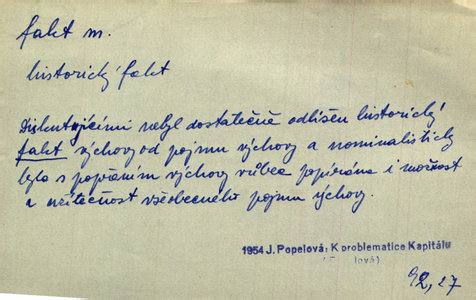 fakt m.
historický fakt
Diskutujícími nebyl dostatečně odlišen historický
fakt výchovy od pojmu výchovy a nominalisticky
byla s popřením výchovy vůbec popírána i možnost
a užitečnost všeobecného pojmu výchovy.
1954 J. Popelová: K problematice Kapitálu
92, 27